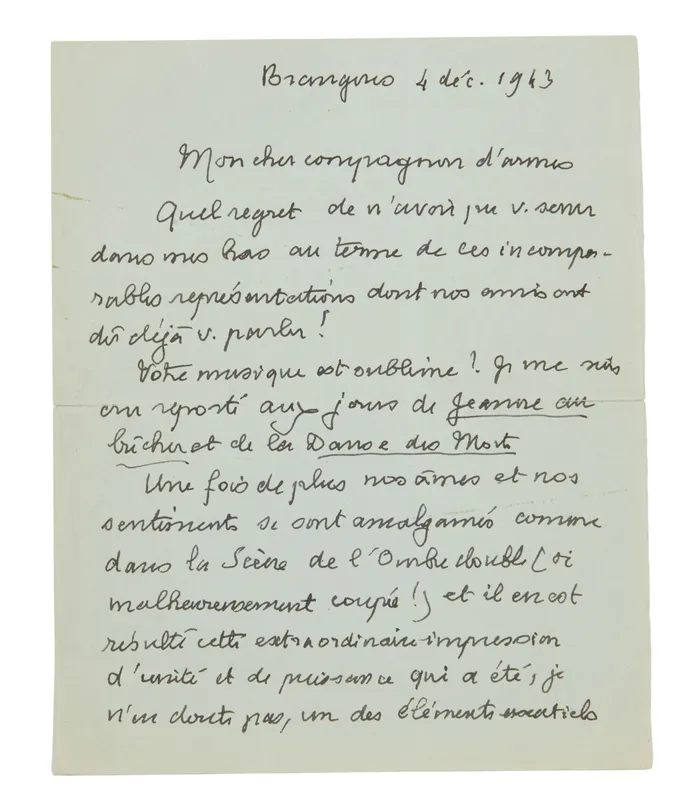 Brangues 4 déc. 1943
Mon cher compagnon d'armes
Quel regret de n'avoir pu v. serrer
dans mes bras au terme de ces incompa-
rables représentations dont nos amis ont
dû déjà v. parler !
Votre musique est sublime ! Je me suis
cru reporté aux jours de Jeanne au
bûcher et de la Danse des Morts
Une fois de plus nos âmes et nos
sentiments se sont amalgamés comme
dans la Scène de l'Ombre double (si
malheureusement coupée !) et il en est
résulté cette extraordinaire impression
d'unité et de puissance qui a été, je
n'en doute pas, un des éléments essentiels